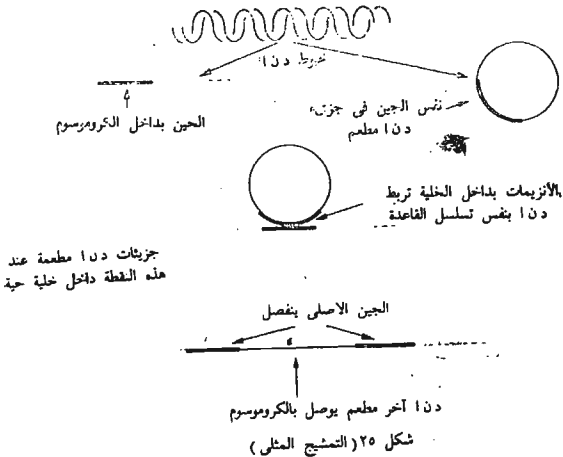 خيوط د ن ا
نفس الجين فى جزىء
د ن ا مطعم
الجين بداخل الكروموسوم
الأنزيمات بداخل الخلية تربط
د ن ا بنفس تسلسل القاعدة
جزيئات د ن ا مطعمة عند
هذه النقطة داخل خلية حية
الجين الاصلى ينفصل
د ن ا آخر مطعم يوصل بالكروموسوم
شكل ٢٥ ( التمشيج المثلى )